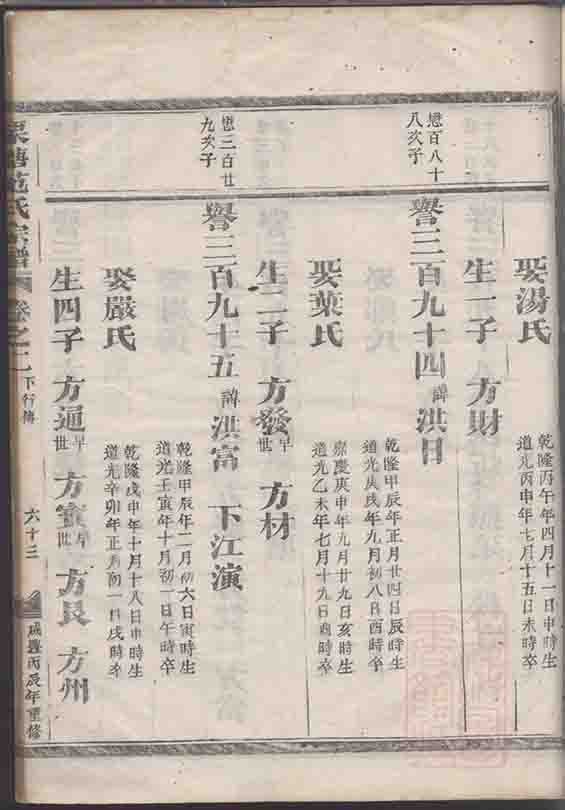 娶湯氏
乾隆丙午年四月十一日申時生
道光丙申年七月十五日未時卒
生一子 方財
懋百八十
八次子
譽三百九十四 諱洪日
乾隆甲辰年正月廿四日辰時生
道光庚戌年九月初八日酉時卒
娶葉氏
嘉慶庚申年九月廿九日亥時生
道光乙未年七月十九日酉時卒
生二子 方發 早世 方材
懋三百廿
九次子
譽三百九十五 諱洪富 下江演
乾隆甲辰年二月初六日寅時生
道光壬寅年十月初一日午時卒
娶嚴氏
乾隆戊申年十月十八日申時生
道光辛卯年正月初一日戌時卒
生四子 方通 早世 方寅 早世 方良 方州
范氏宗譜 卷之二 下行傳 六十三 咸豐丙辰年重修